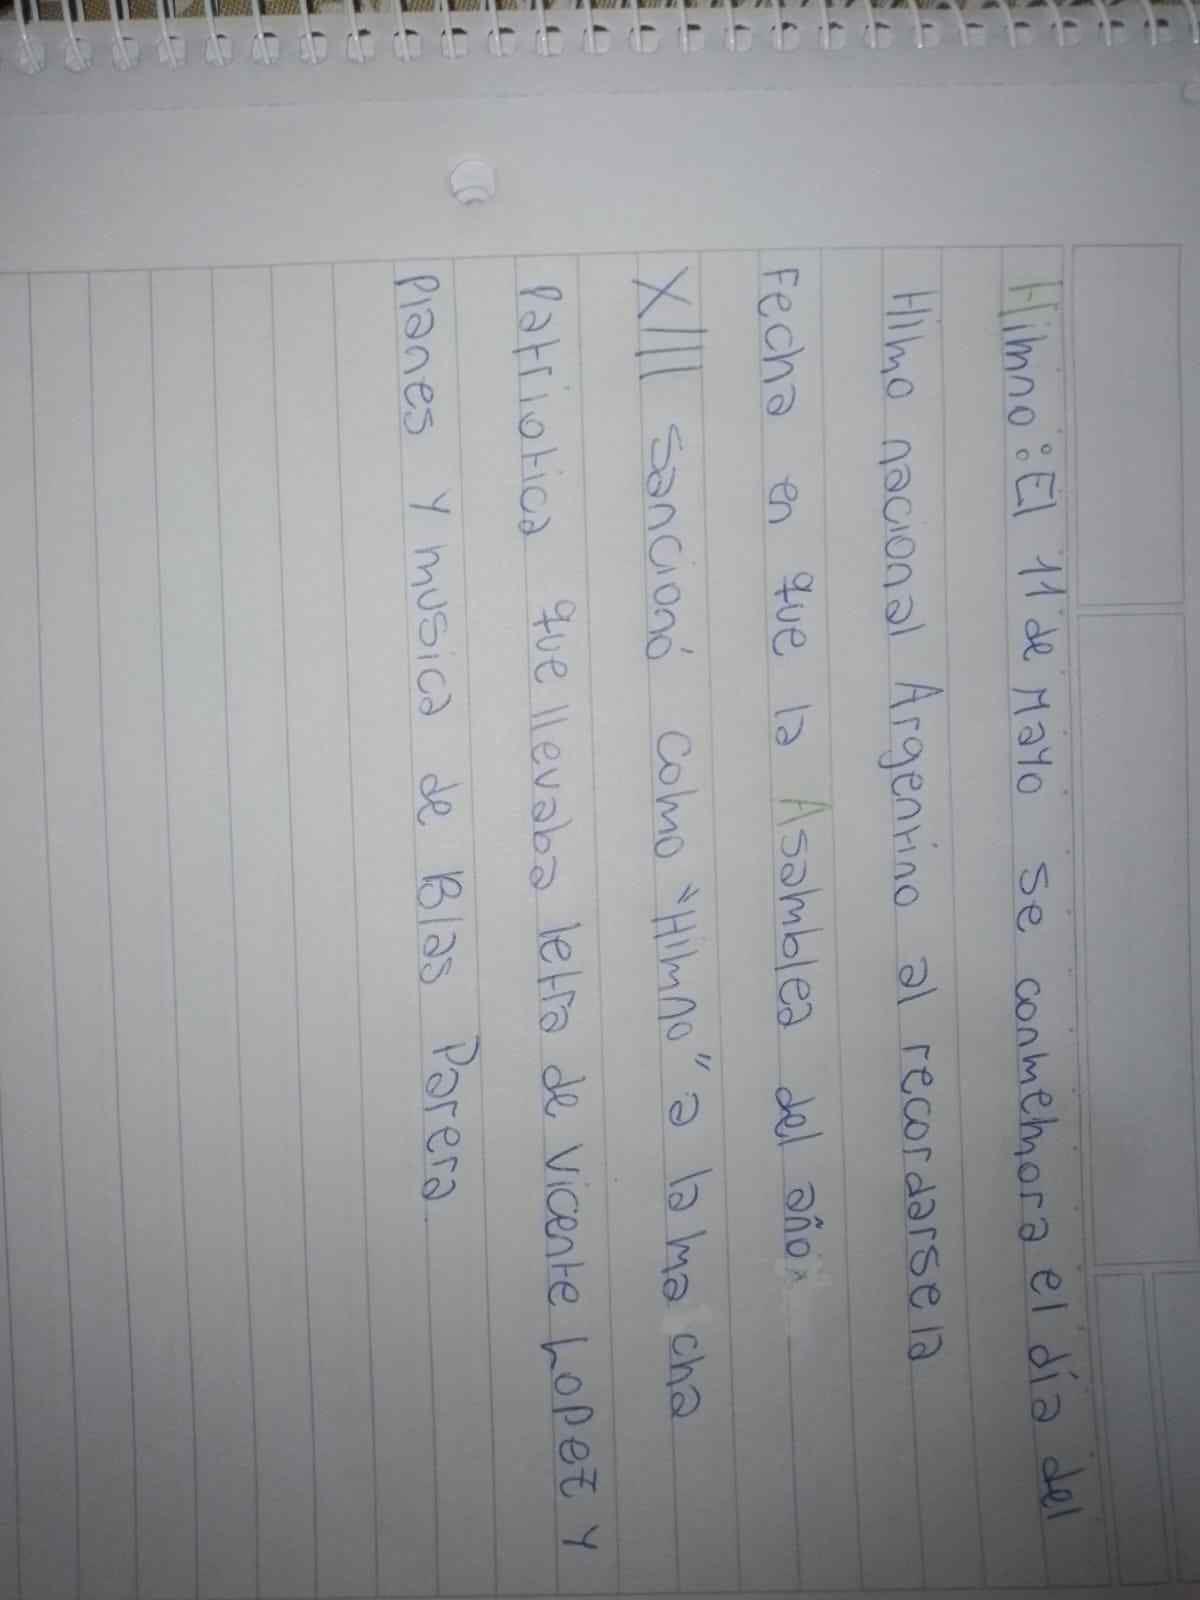 Himno: El 11 de Mayo se conmemora el día del
Himo nacional Argentino al recordarse la
Fecha en que la Asamblea del año
XIII sancionó como "Himno" a la ma cha
Patriotica que llevaba letra de Vicente Lopez y
Planes y musica de Blas Parera